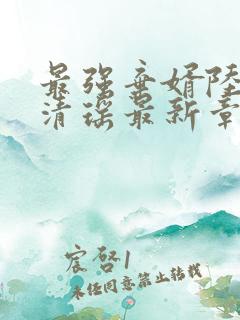 最强弃婿陆
清瑶最新章
宸啓1
未经同意禁止转载